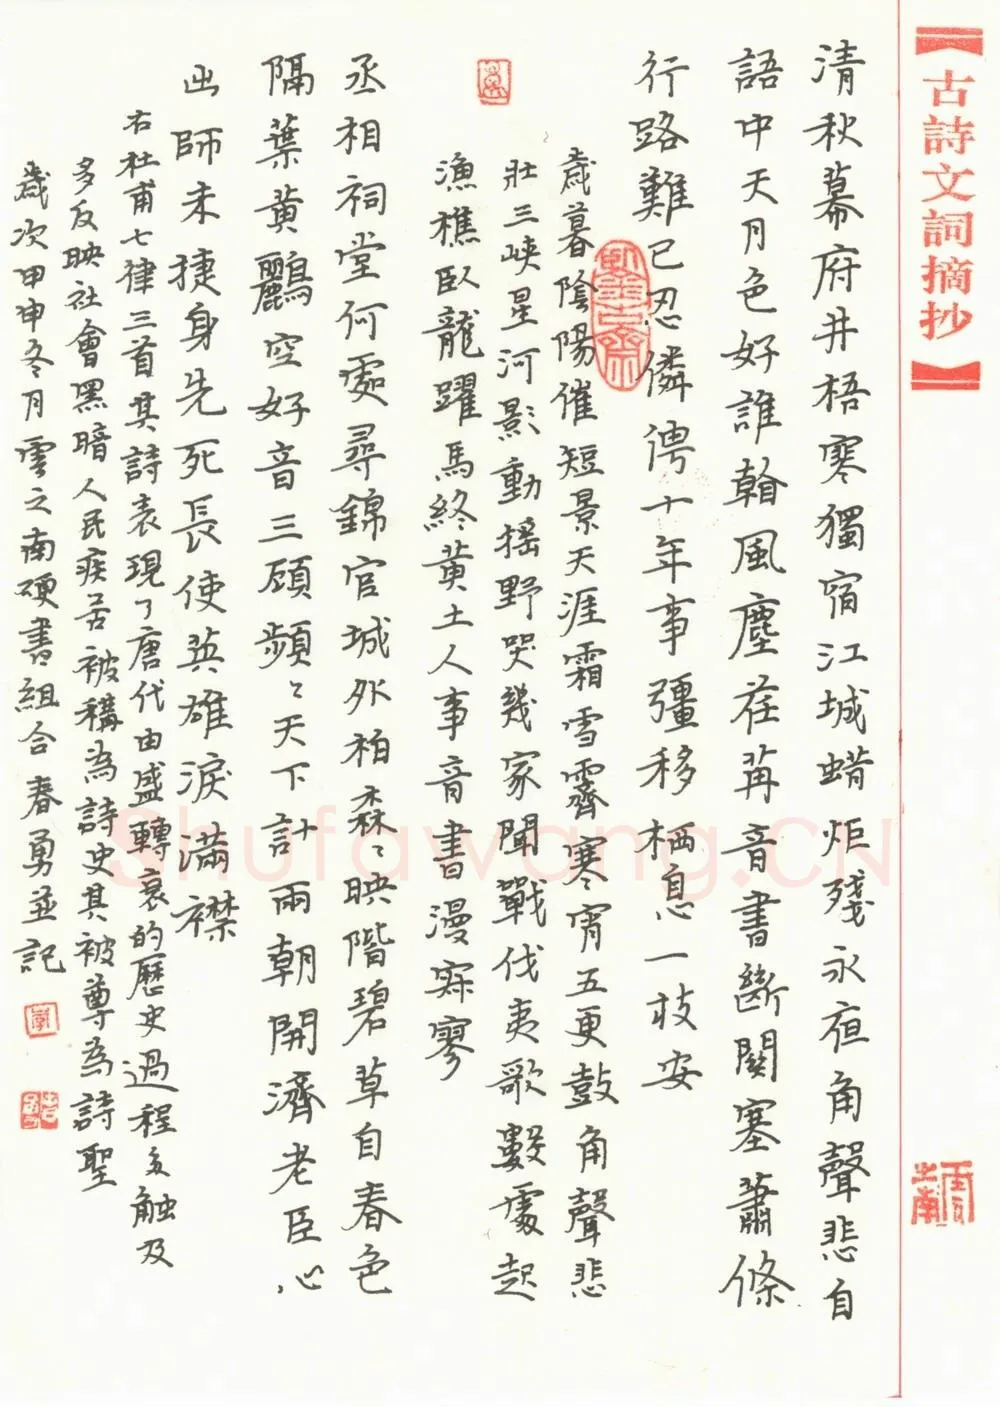 【古詩文詞摘抄】
清秋幕府井梧寒獨宿江城蜡炬殘永夜角聲悲自
語中天月色好誰看風塵荏苒音書斷關塞蕭條
行路難已忍伶俜十年事彊移栖息一枝安
歲暮陰陽催短景天涯霜雪霽寒宵五更鼓角聲悲
壯三峽星河影動搖野哭幾家聞戰伐夷歌數處起
漁樵臥龍躍馬終黃土人事音書漫寂寥
丞相祠堂何處尋錦官城外柏森〻映階碧草自春色
隔葉黃鸝空好音三顧頻〻天下計兩朝開濟老臣心
出師未捷身先死長使英雄淚滿襟
右杜甫七律三首其詩表現了唐代由盛轉衰的歷史過程多觸及
多反映社會黑暗人民疾苦被稱為詩史其被尊為詩聖
歲次甲申冬月雲之南硬書組合春勇並記
雲之南
Shufawang.CN